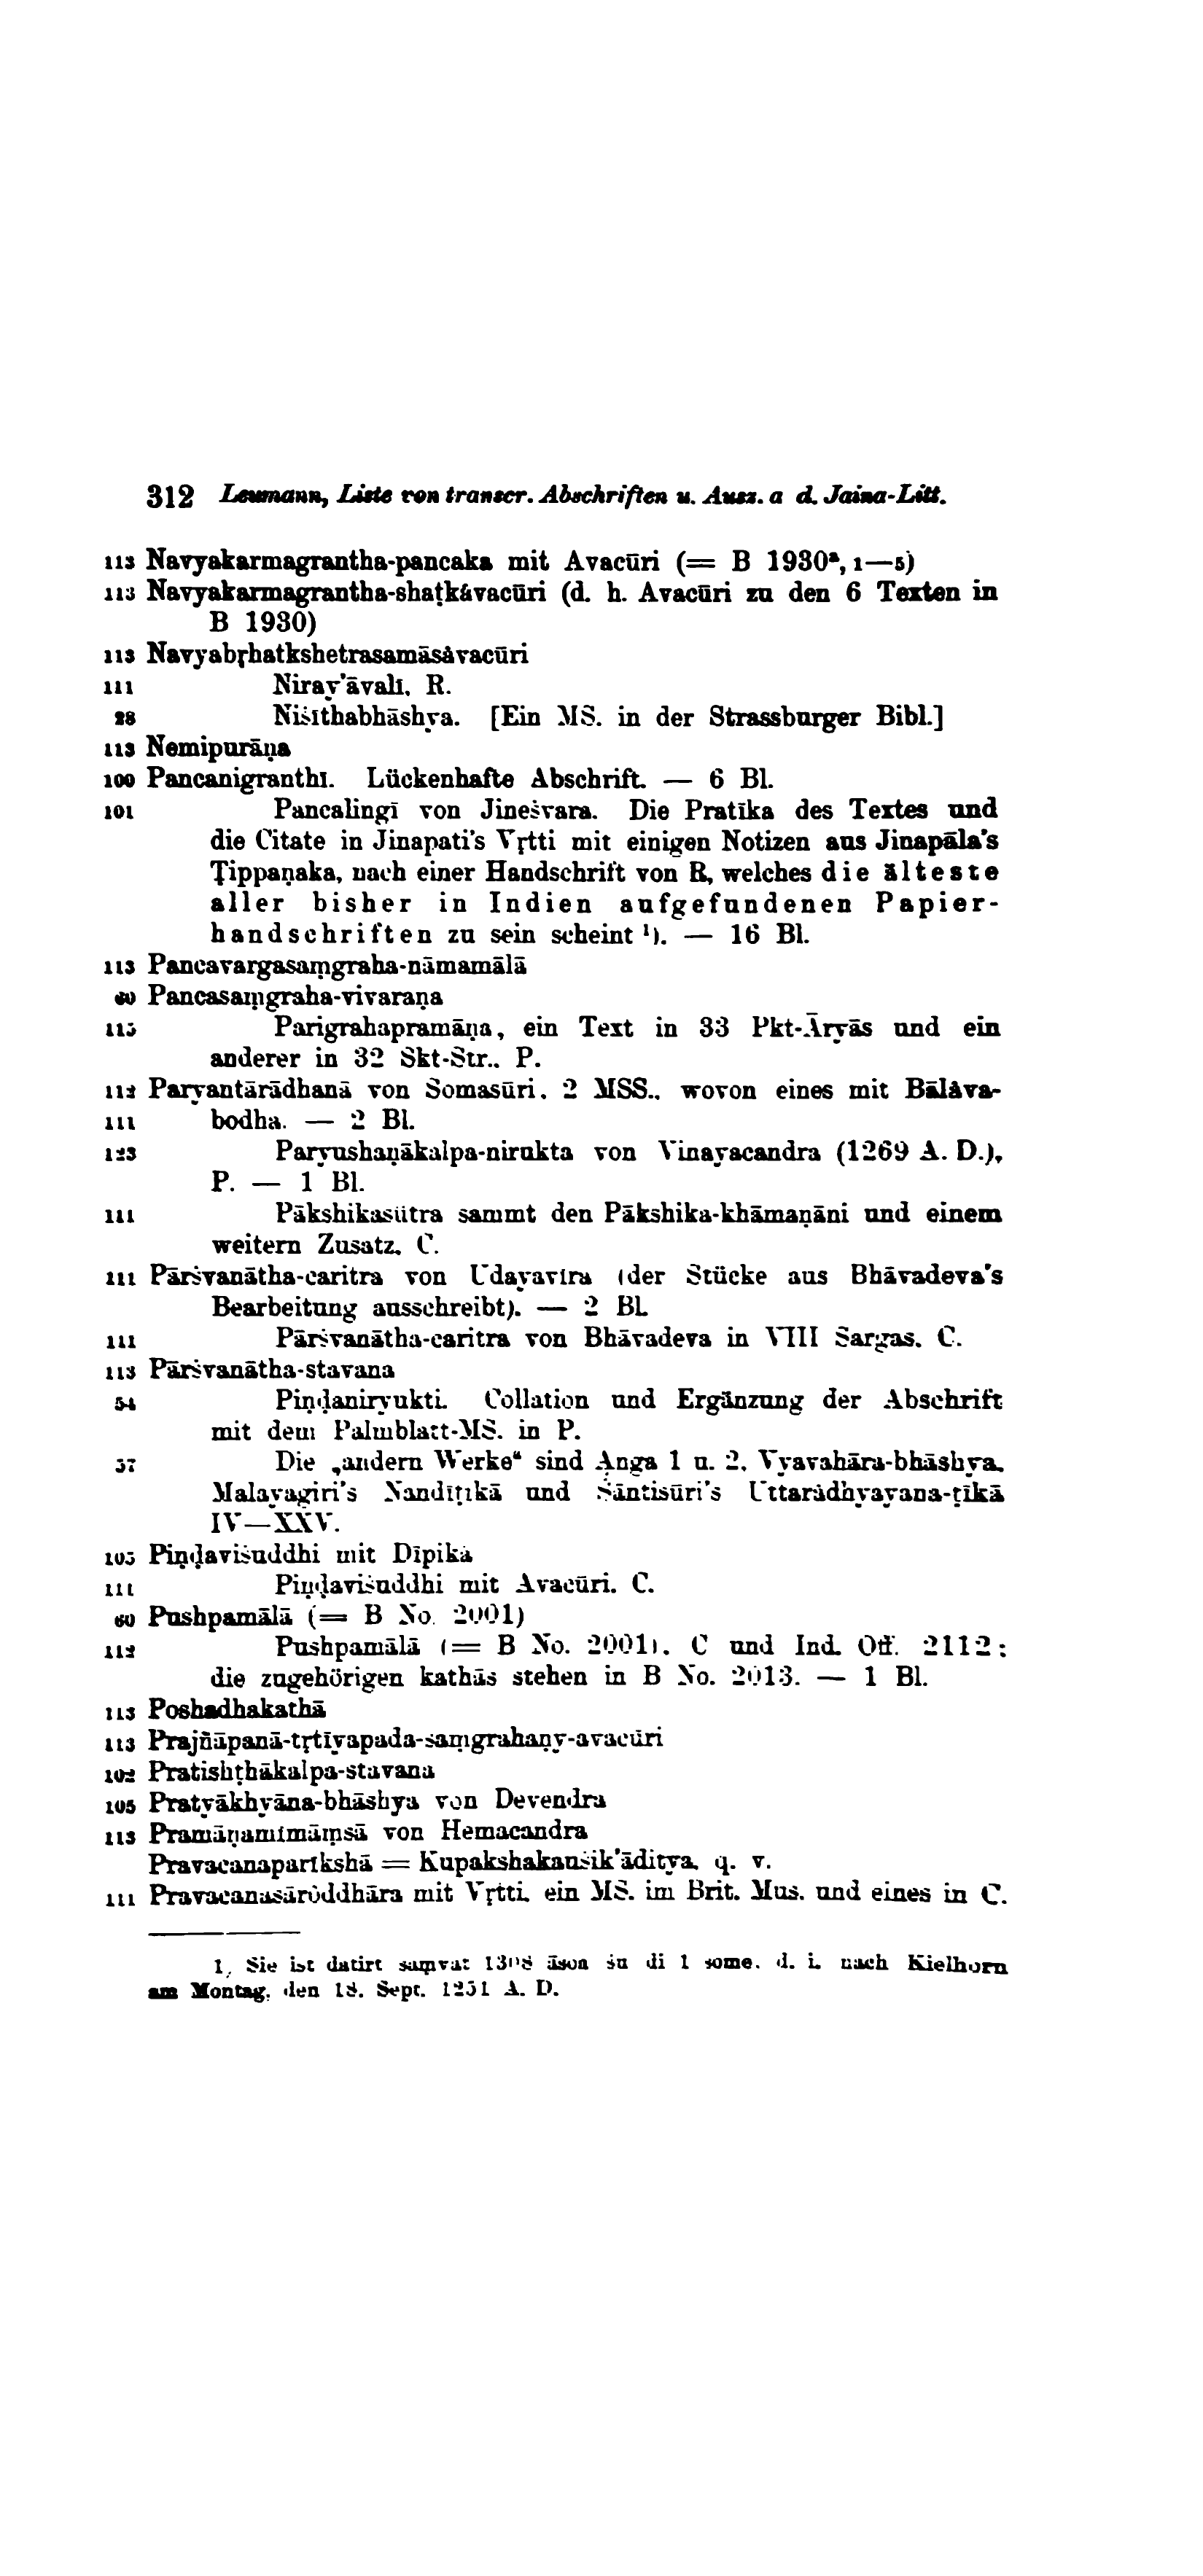 312 Leumann, Liste von transcr. Abschriften u. Ausz. a d. Jaina-Litt.
113 Navyakarmagrantha-pancaka mit Avacūri (= B 1930ª, 1—5)
113 Navyakarmagrantha-shaṭkâvacūri (d. h. Avacūri zu den 6 Texten in
B 1930)
113 Navyabṛhatkshetrasamāsâvacūri
111 Niray'āvalī, R.
28 Niśīthabhāshya. [Ein MS. in der Strassburger Bibl.]
113 Nemipurāṇa
100 Pancanigranthī. Lückenhafte Abschrift. — 6 Bl.
101 Pancalingī von Jineśvara. Die Pratīka des Textes und
die Citate in Jinapati's Vṛtti mit einigen Notizen aus Jinapāla's
Ṭippaṇaka, nach einer Handschrift von R, welches die älteste
aller bisher in Indien aufgefundenen Papier-
handschriften zu sein scheint ¹). — 16 Bl.
113 Pancavargasaṃgraha-nāmamālā
60 Pancasaṃgraha-vivaraṇa
115 Parigrahapramāṇa, ein Text in 33 Pkt-Āryās und ein
anderer in 32 Skt-Str., P.
112 Paryantārādhanā von Somasūri, 2 MSS., wovon eines mit Bālâva-
111 bodha. — 2 Bl.
123 Paryushaṇākalpa-nirukta von Vinayacandra (1269 A. D.),
P. — 1 Bl.
111 Pākshikasūtra sammt den Pākshika-khāmaṇāni und einem
weitern Zusatz, C.
111 Pārśvanātha-caritra von Udayavīra (der Stücke aus Bhāvadeva's
Bearbeitung ausschreibt). — 2 Bl.
111 Pārśvanātha-caritra von Bhāvadeva in VIII Sargas, C.
113 Pārśvanātha-stavana
54 Piṇḍaniryukti. Collation und Ergänzung der Abschrift
mit dem Palmblatt-MS. in P.
57 Die „andern Werke“ sind Aṅga 1 u. 2, Vyavahāra-bhāshya,
Malayagiri's Nandīṭīkā und Śāntisūri's Uttarâdhyayana-ṭīkā
IV—XXV.
105 Piṇḍaviśuddhi mit Dīpikā
111 Piṇḍaviśuddhi mit Avacūri, C.
60 Pushpamālā (= B No. 2001)
112 Pushpamālā (= B No. 2001), C und Ind. Off. 2112;
die zugehörigen kathās stehen in B No. 2013. — 1 Bl.
113 Poshadhakathā
113 Prajñāpanā-tṛtīyapada-saṃgrahaṇy-avacūri
102 Pratishṭhākalpa-stavana
105 Pratyākhyāna-bhāshya von Devendra
113 Pramāṇamīmāṃsā von Hemacandra
Pravacanaparīkshā = Kupakshakauśik'āditya, q. v.
111 Pravacanasārôddhāra mit Vṛtti, ein MS. im Brit. Mus. und eines in C.
1) Sie ist datirt saṃvat 1308 āson śu di 1 some, d. i. nach Kielhorn
am Montag, den 18. Sept. 1251 A. D.